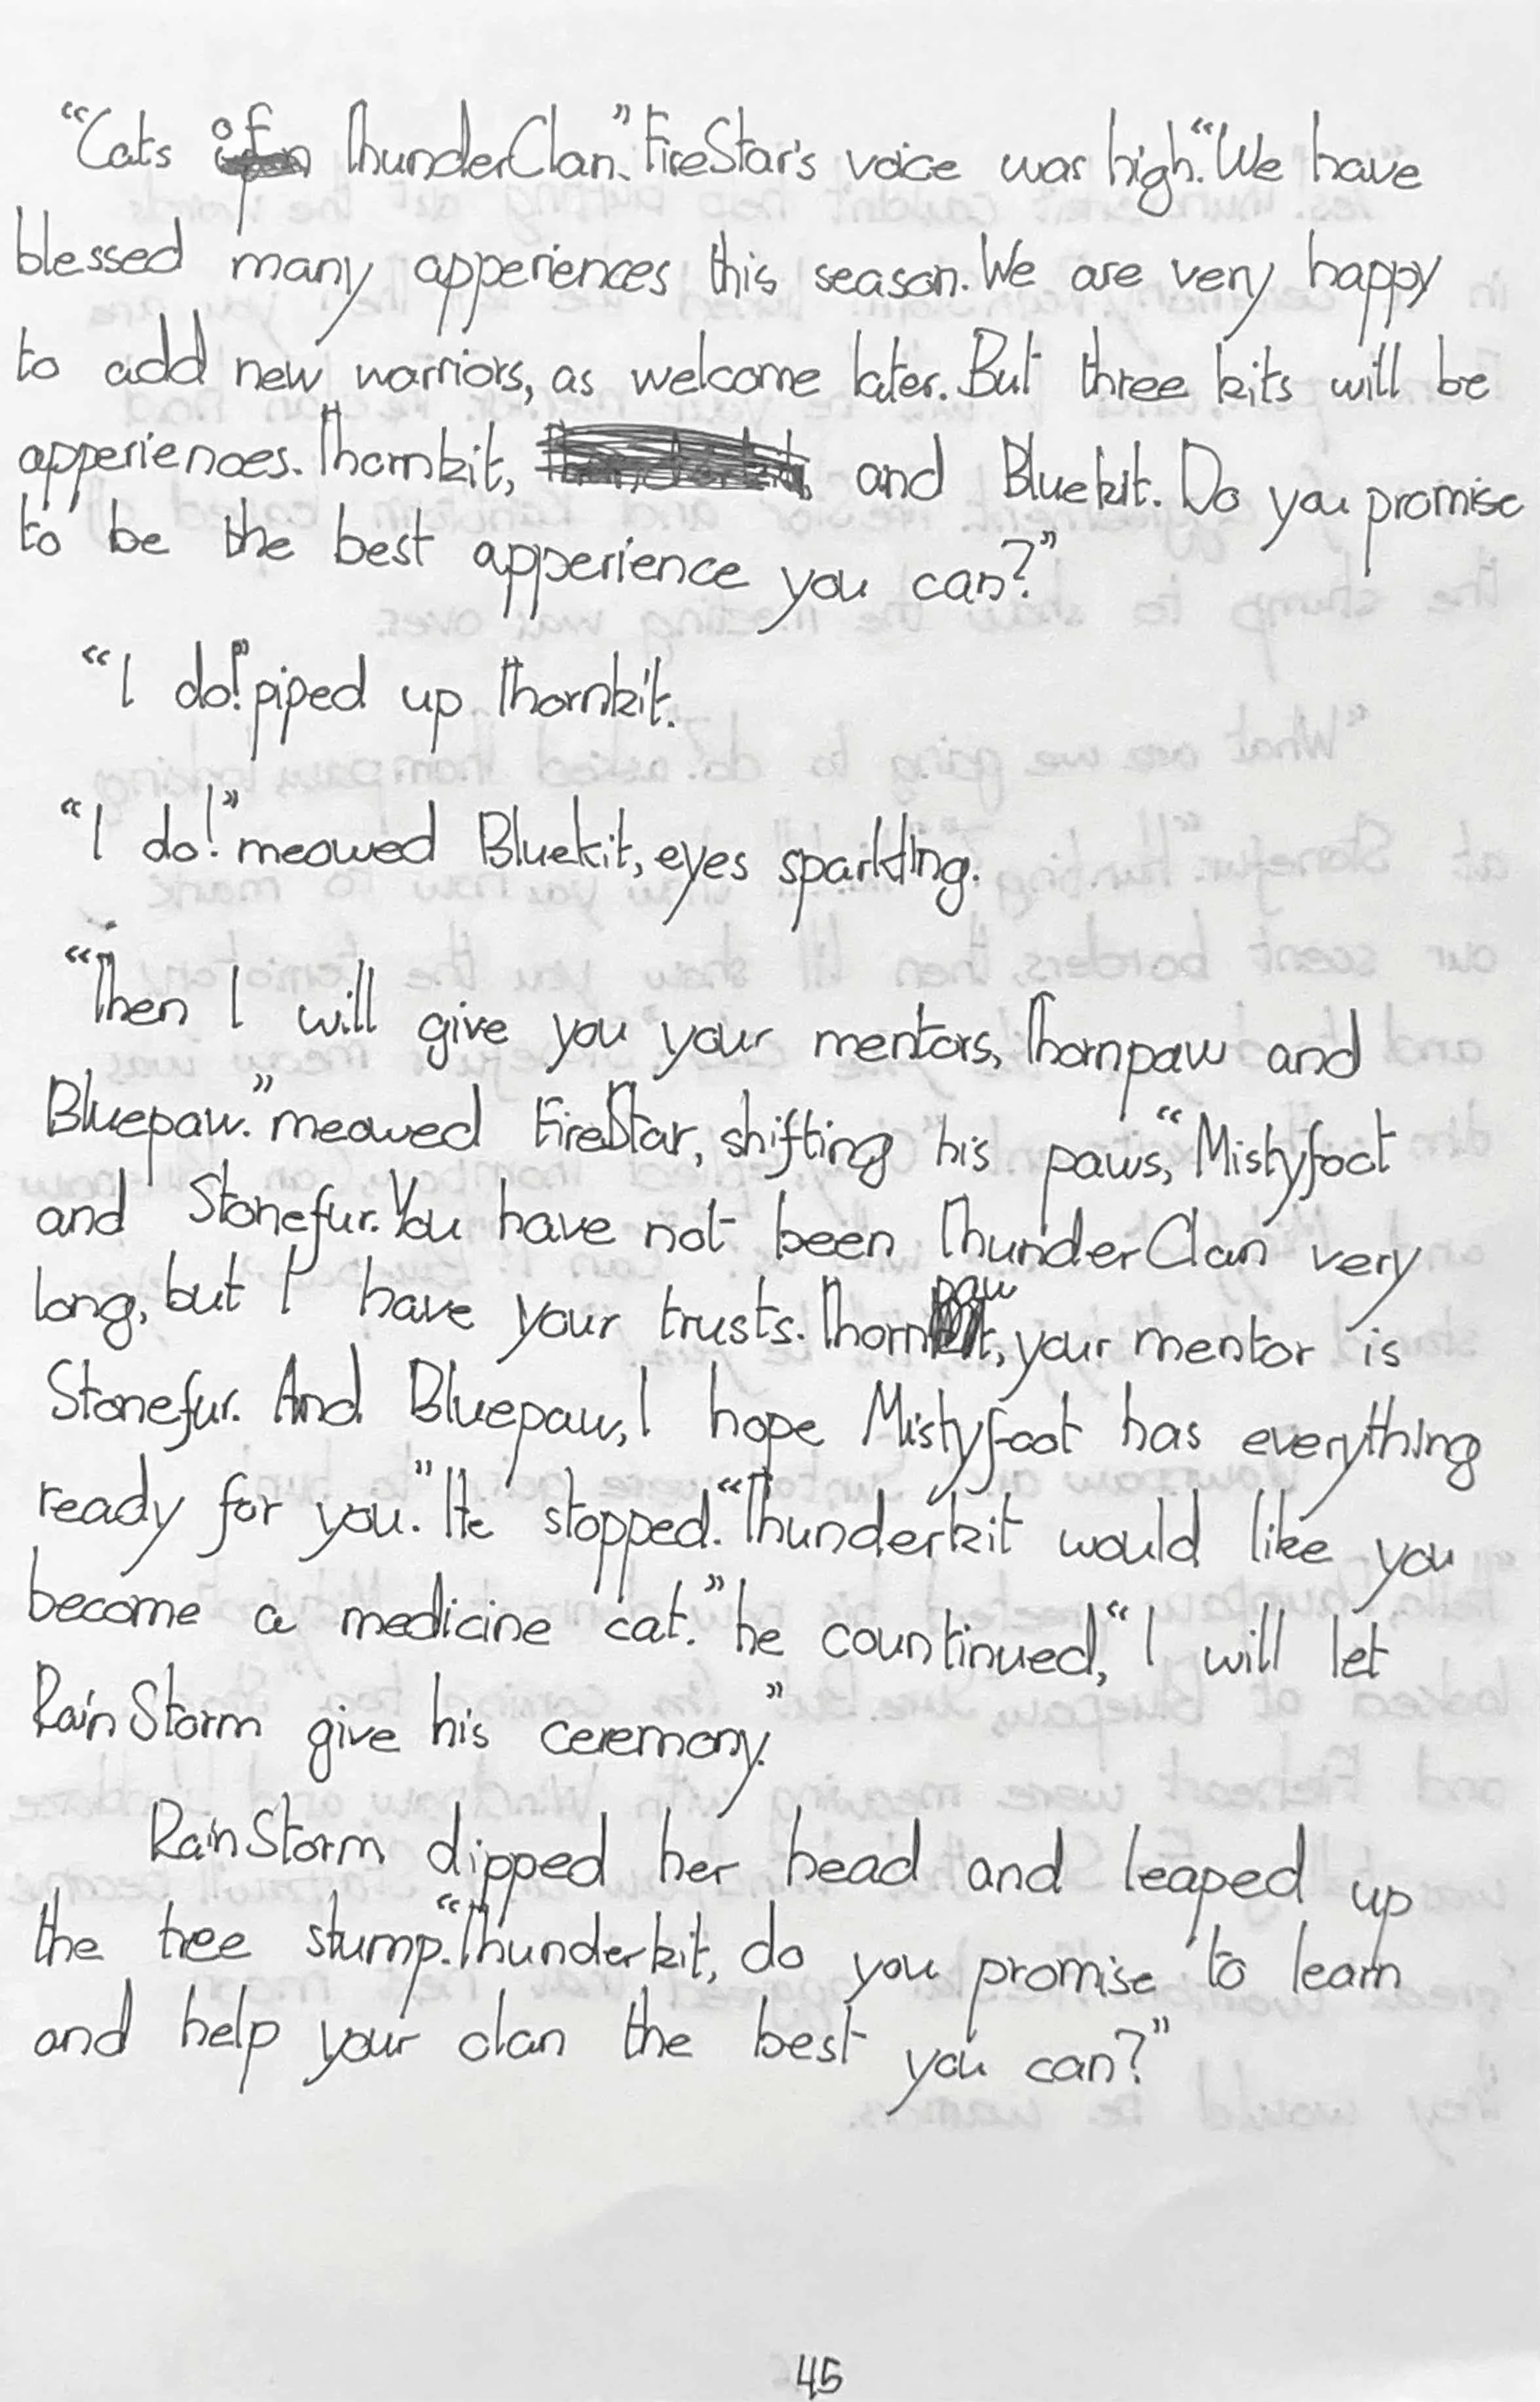 “Cats of ThunderClan.” FireStar's voice was high. “We have
blessed many apperiences this season. We are very happy
to add new warriors, as welcome later. But three kits will be
apperiences. Thornkit, and Bluekit. Do you promise
to be the best apperience you can?”
“I do!” piped up Thornkit.
“I do!” meowed Bluekit, eyes sparkling.
“Then I will give you your mentors, Thornpaw and
Bluepaw.” meowed FireStar, shifting his paws, “Mistyfoot
and Stonefur. You have not been ThunderClan very
long, but I have your trusts. Thornpaw, your mentor is
Stonefur. And Bluepaw, I hope Mistyfoot has everything
ready for you.” He stopped. “Thunderkit would like you
become a medicine cat.” he countinued, “I will let
RainStorm give his ceremony.”
RainStorm dipped her head and leaped up
the tree stump. “Thunderkit, do you promise to learn
and help your clan the best you can?”
45